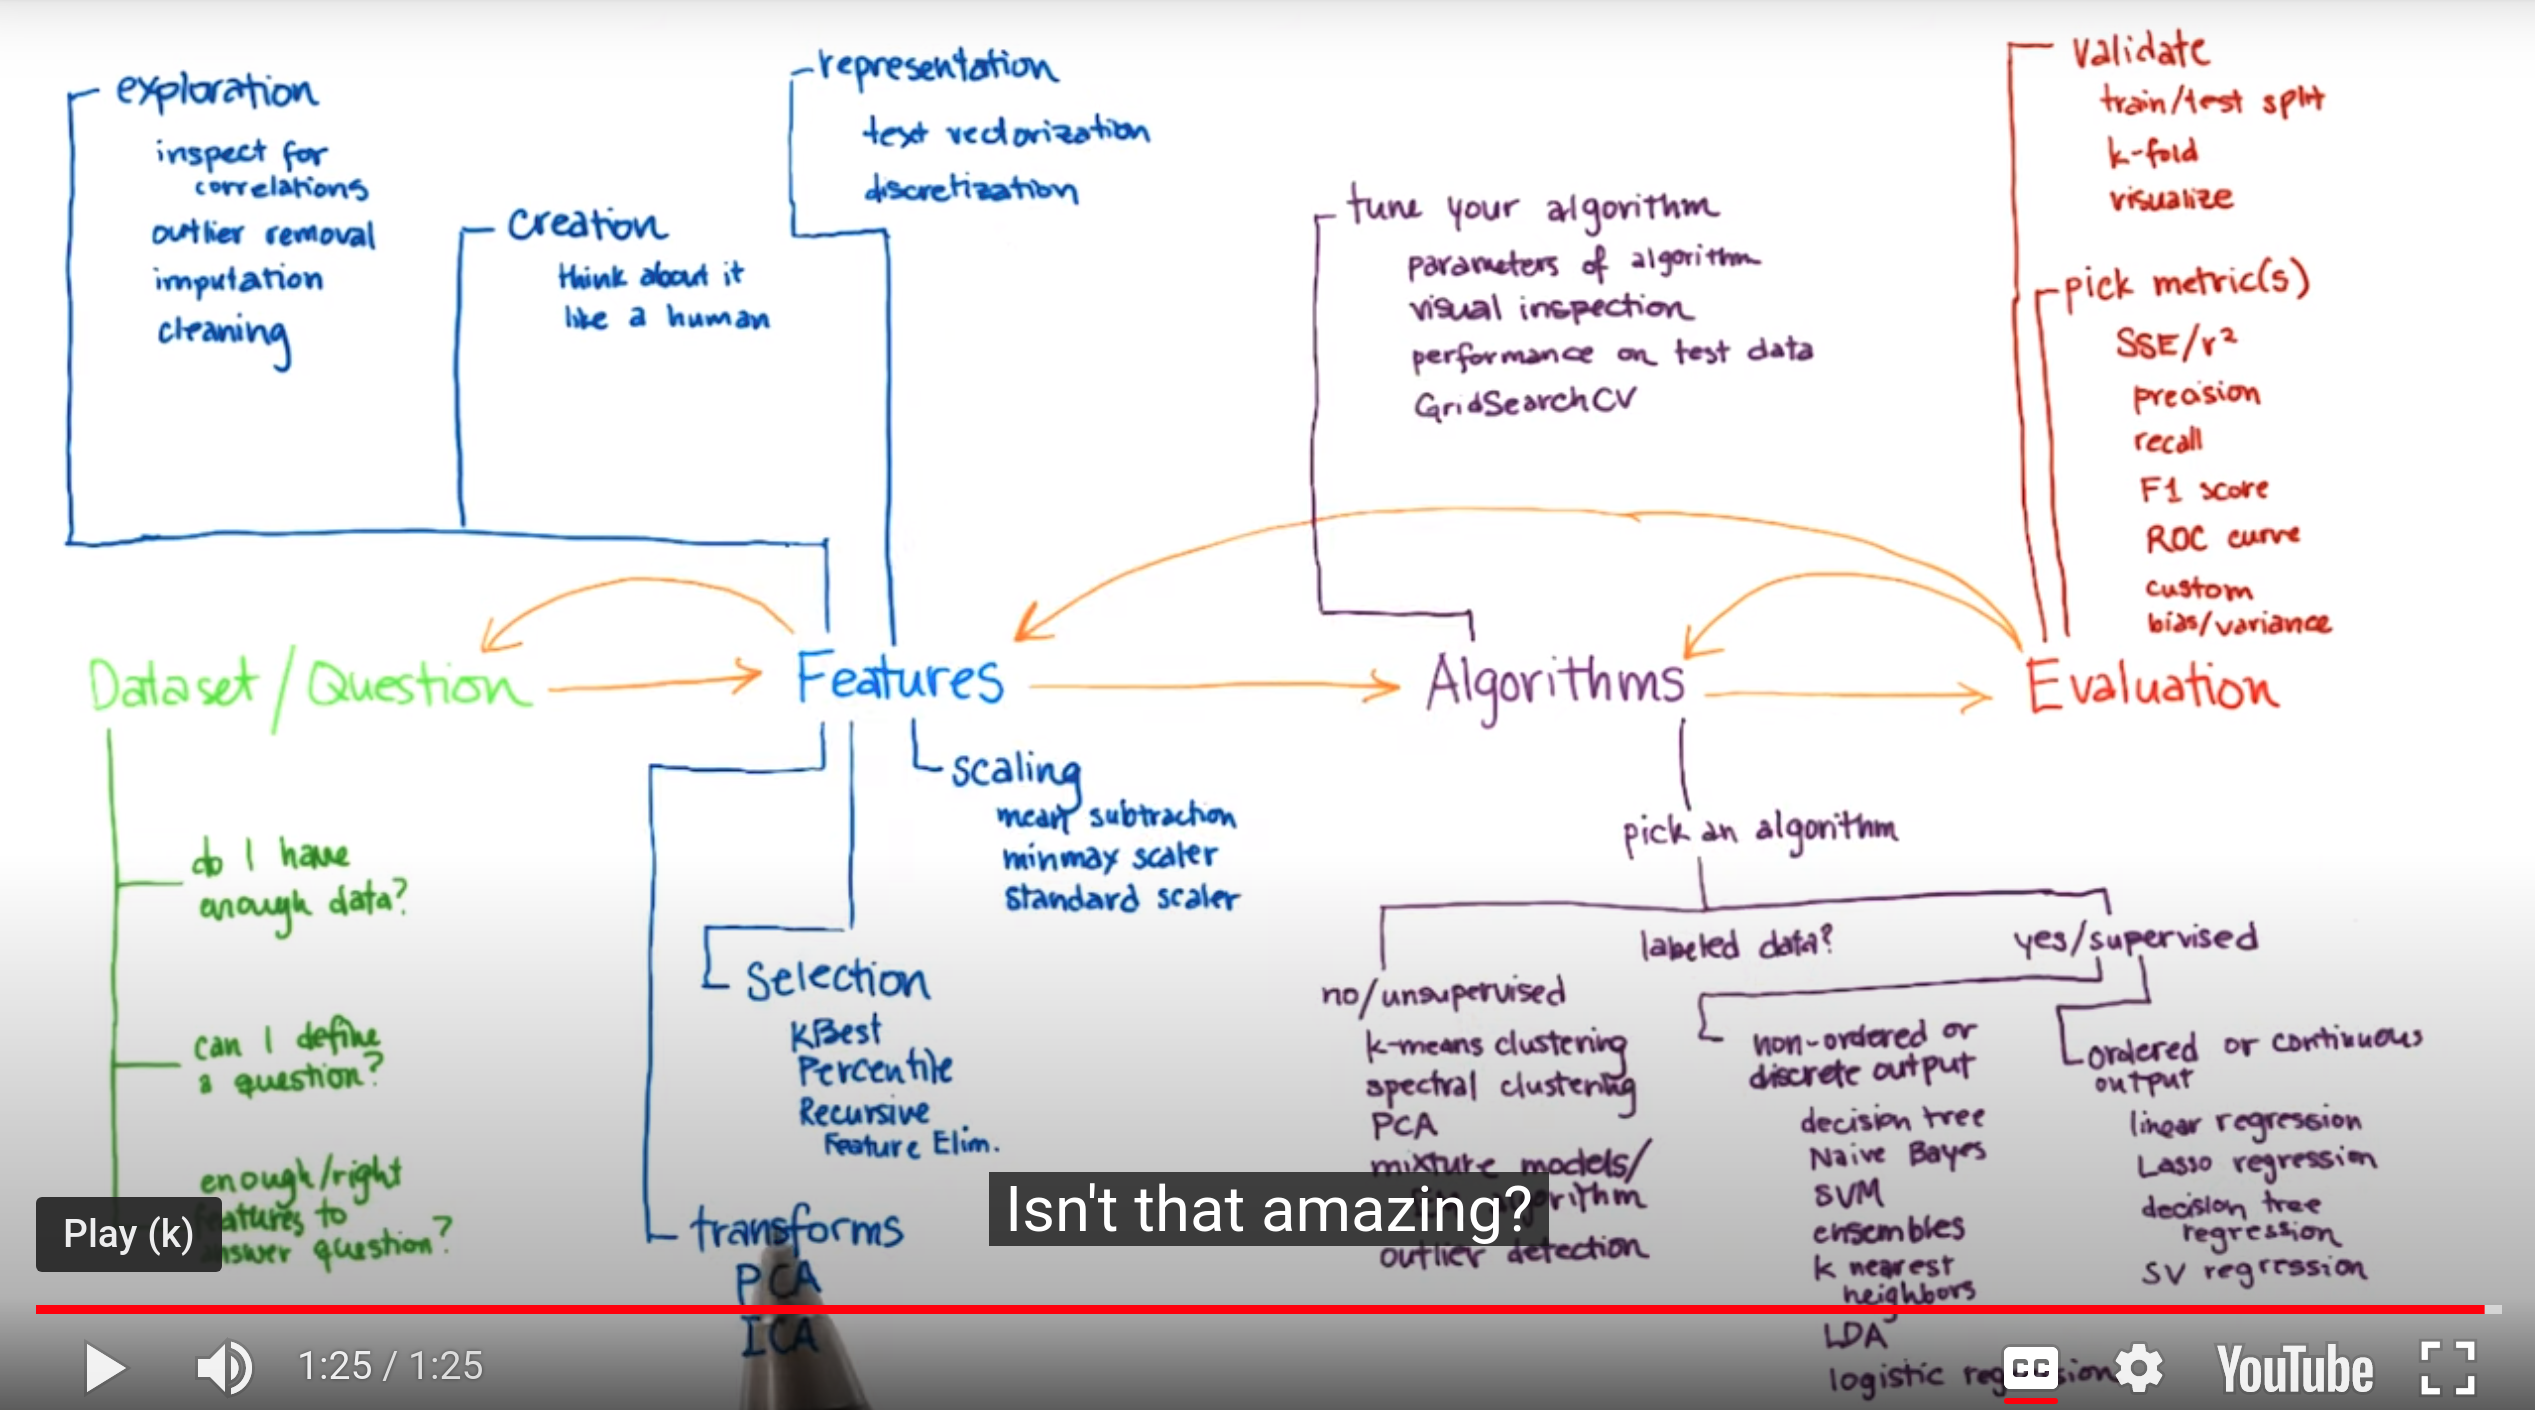 exploration
inspect for
correlations
outlier removal
imputation
cleaning
creation
think about it
like a human
representation
text vectorization
discretization
tune your algorithm
parameters of algorithm
visual inspection
performance on test data
GridSearchCV
validate
train/test split
k-fold
visualize
pick metric(s)
SSE/r²
precision
recall
F1 score
ROC curve
custom
bias/variance
Dataset/Question
Features
Algorithms
Evaluation
do I have
enough data?
can I define
a question?
enough/right
features to
answer question?
scaling
mean subtraction
minmax scaler
standard scaler
Selection
KBest
Percentile
Recursive
Feature Elim.
transforms
PCA
ICA
pick an algorithm
labeled data?
no/unsupervised
k-means clustering
spectral clustering
PCA
mixture models/
algorithm
outlier detection
yes/supervised
non-ordered or
discrete output
decision tree
Naive Bayes
SVM
ensembles
k nearest
neighbors
LDA
logistic regression
ordered or continuous
output
linear regression
Lasso regression
decision tree
regression
SV regression
Isn't that amazing?
Play (k)
1:25 / 1:25
CC
YouTube